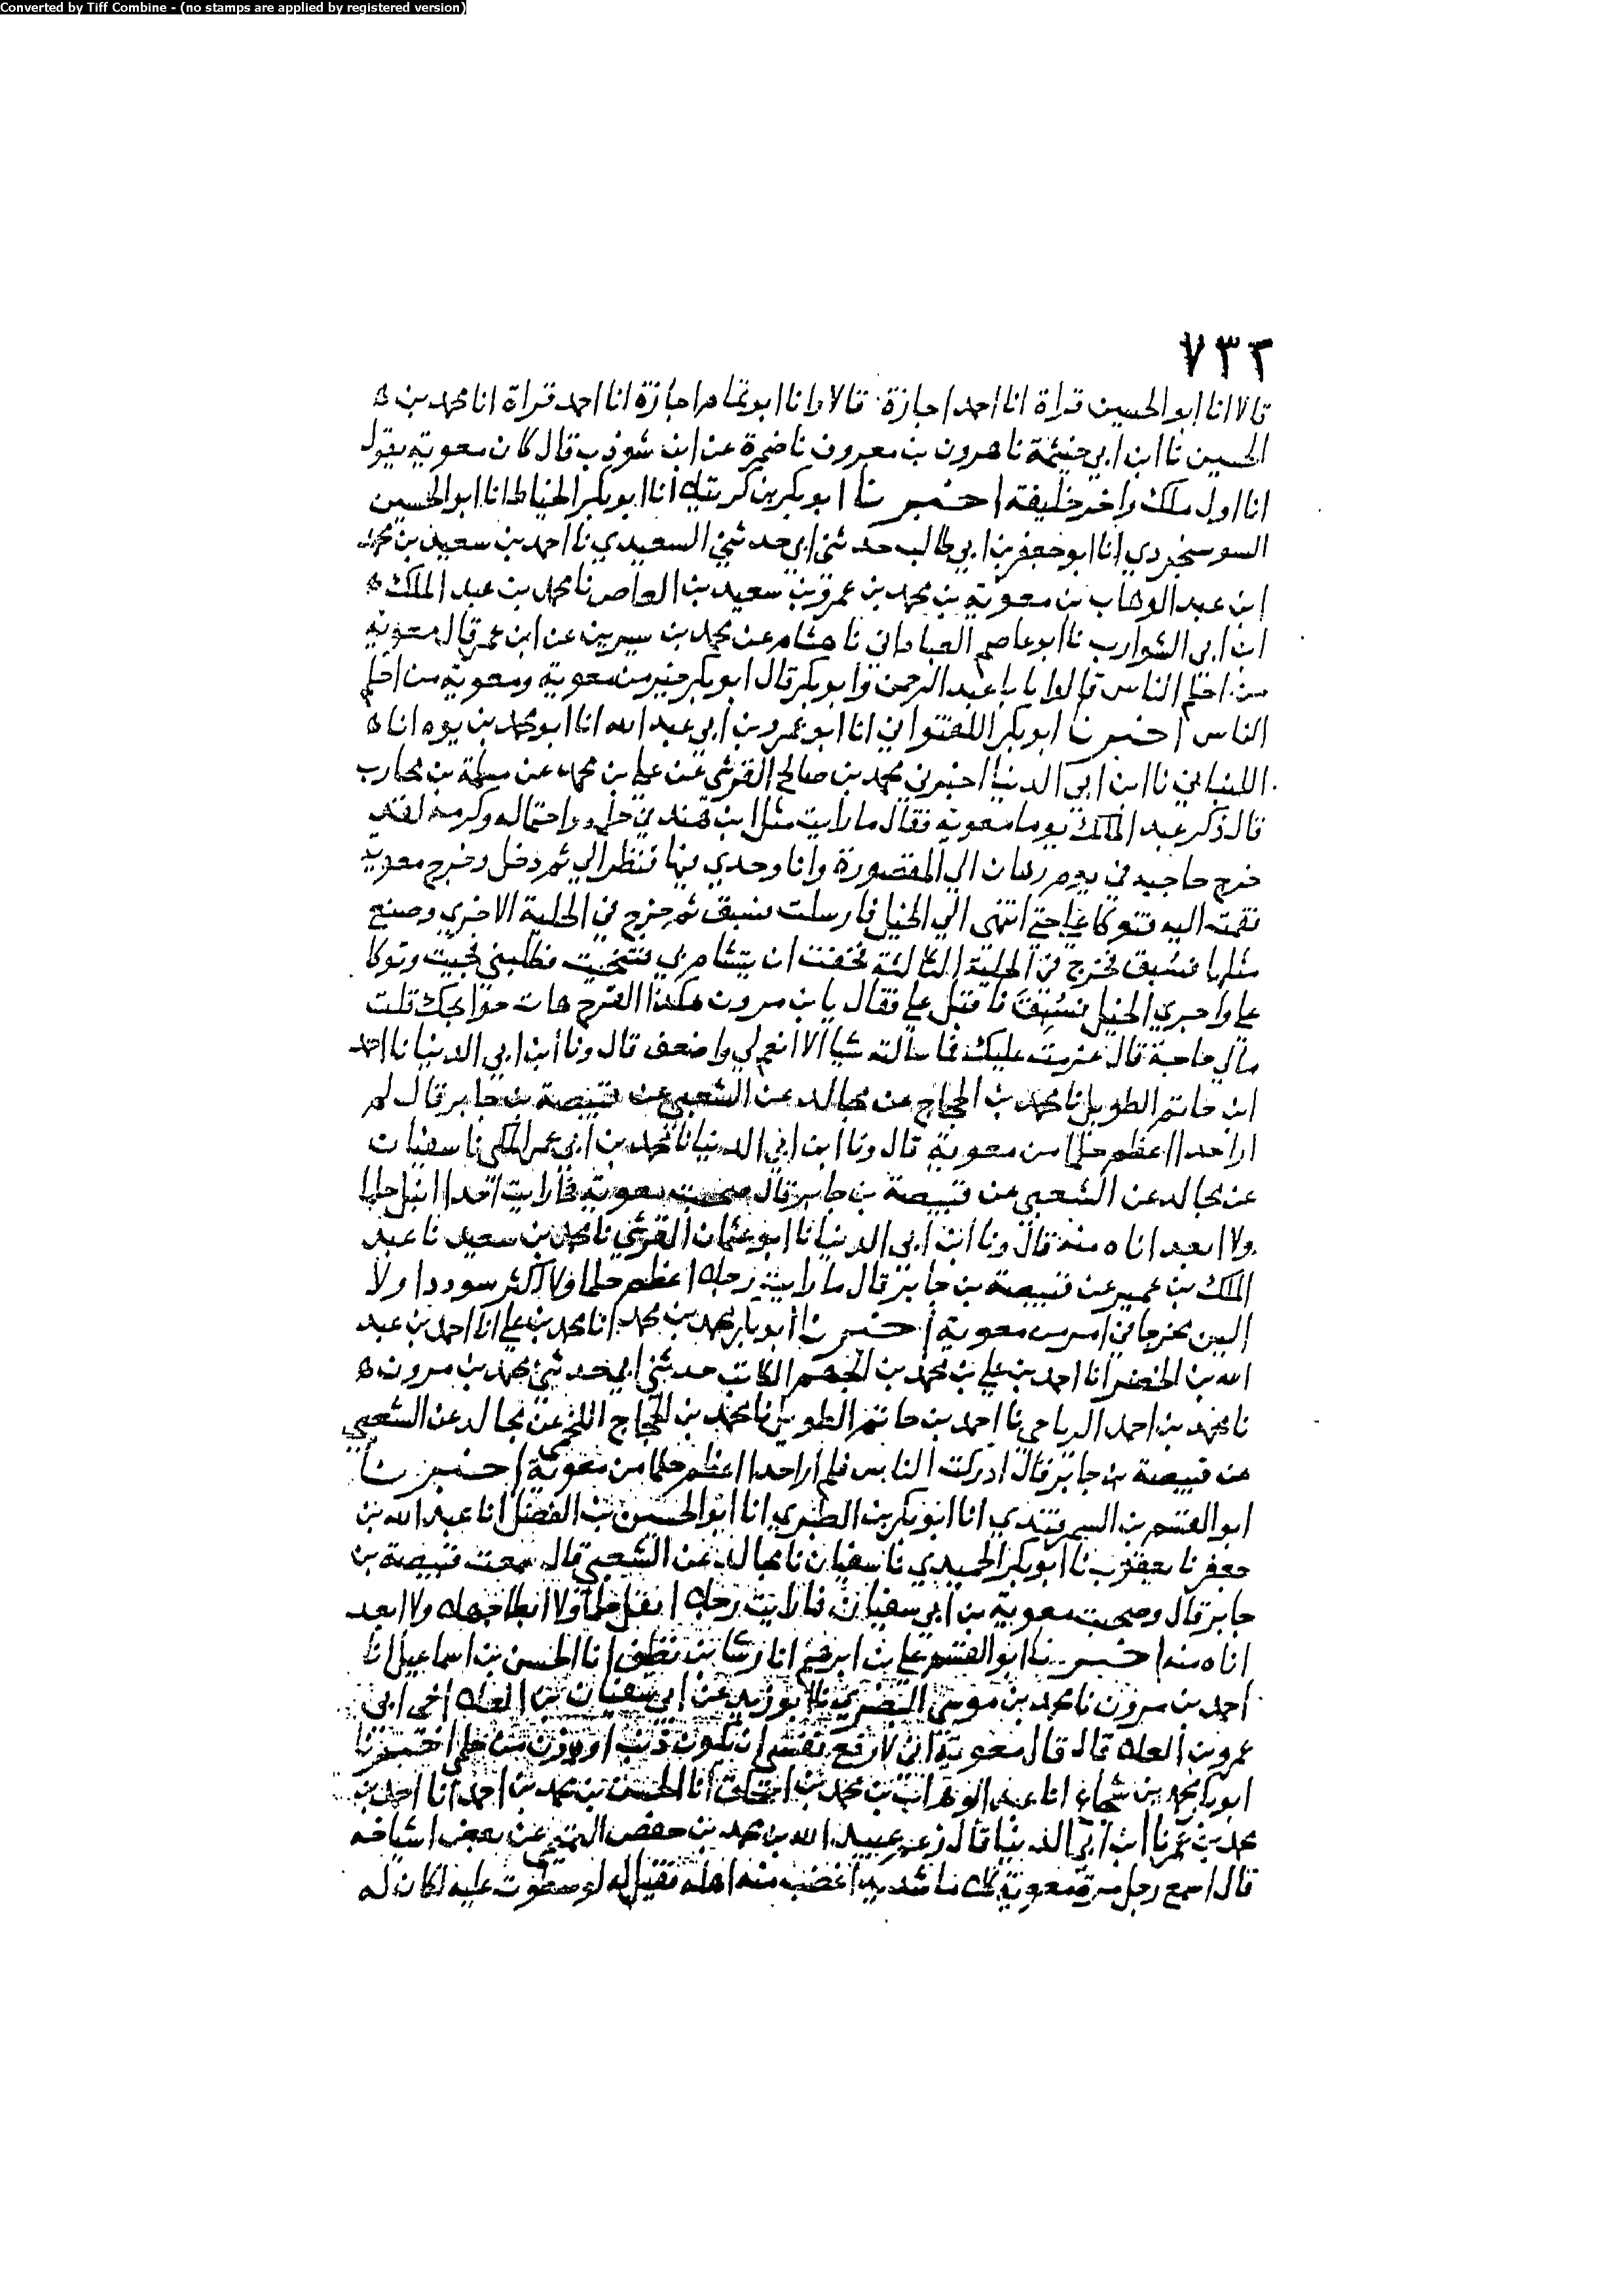 Converted by Tiff Combine - (no stamps are applied by registered version)
٧٣٢
قالا انا ابو الحسين قراة انا احمد اجازة قالا وانا ابو تمام اجازة انا احمد قراة انا محمد بن
الحسين نا ابن ابي خيثمة نا هرون بن معروف نا ضمرة عن ابن شوذب قال كان معوية يقول
انا اول ملك واخر خليفة اخبرنا ابو بكر بن كرتيلا انا ابو بكر الخياط انا ابو الحسين
السوسنجردي انا ابو جعفر بن ابي طالب حدثني ابي حدثني السعيدي نا احمد بن سعيد بن محمد
ابن عبد الوهاب بن معوية بن محمد بن عمرو بن سعيد بن العاص نا محمد بن عبد الملك
ابن ابي الشوارب نا ابو عاصم العباداني نا هشام عن محمد بن سيرين عن ابن عمر قال معوية
من احلم الناس قالوا يا با عبد الرحمن وابو بكر قال ابو بكر خير من معوية ومعوية من احلم
الناس اخبرنا ابو بكر اللفتواني انا ابو عمرو بن ابي عبد الله انا ابو محمد بن يوه انا
اللنباني نا ابن ابي الدنيا اخبرني محمد بن صالح القرشي عن علي بن محمد عن مسلمة بن محارب
قال ذكر عبد الملك يوما معوية فقال ما رايت مثل ابن هند في حلمه واحتماله وكرمه لقد
خرج حاجبه في يوم رهان الي المقصورة وانا وحدي فيها فنظر الي ثم دخل وخرج معوية
فقمت اليه فتوكا علي حتي انتهي الي الخيل فارسلت فسبق ثم خرج في الحلبة الاخري وصنع
مثلها فسبق فخرج في الحلبة الثالثة فخفت ان يتشام بي فتنحيت فطلبني فجيت وتوكا
علي واجري الخيل فسبق فاقبل علي فقال يا بن مرون هكذا القرح هات حوايجك قلت
مالي حاجة قال عزمت عليك فما سالته شيا الا انعم لي واضعف قال ونا ابن ابي الدنيا نا احمد
ابن حاتم الطويل نا محمد بن الحجاج عن مجالد عن الشعبي عن قبيصة بن جابر قال لم
ار احدا اعظم حلما من معوية قال ونا ابن ابي الدنيا نا محمد بن ابي عمر المكي نا سفيان
عن مجالد عن الشعبي عن قبيصة بن جابر قال صحبت معوية فما رايت احدا اثقل حلما
ولا ابعد اناه منه قال ونا ابن ابي الدنيا نا ابو عثمان القرشي نا محمد بن سعيد نا عبد
الملك بن عمير عن قبيصة بن جابر قال ما رايت رجلا اعظم حلما ولا اكثر سوددا ولا
الين مخرجا في امر من معوية اخبرنا ابو بكر محمد بن محمد انا محمد بن علي انا احمد بن عبد
الله بن الخضر انا احمد بن علي بن محمد بن الجهم الكاتب حدثني ابي حدثني محمد بن مرون
نا محمد بن احمد الرياحي نا احمد بن حاتم الطويل نا محمد بن الحجاج اللخمي عن مجالد عن الشعبي
عن قبيصة بن جابر قال ادركت الناس فلم ار احدا اعظم حلما من معوية اخبرنا
ابو القسم بن السمرقندي انا ابو بكر بن الطبري انا ابو الحسين بن الفضل انا عبد الله بن
جعفر نا يعقوب نا ابو بكر الحميدي نا سفيان نا مجالد عن الشعبي قال سمعت قبيصة بن
جابر قال وصحبت معوية بن ابي سفيان فما رايت رجلا اثقل حلما ولا ابطا جهلا ولا ابعد
اناه منه اخبرنا ابو القسم علي بن ابرهيم انا رشا بن نظيف انا الحسن بن اسماعيل نا
احمد بن مرون نا محمد بن موسي البصري نا ابو زيد عن ابي سفيان بن العلا اخي ابي
عمرو بن العلا قال قال معوية اني لارفع نفسي ان يكون ذنب اوزن من حلمي اخبرنا
ابو بكر محمد بن شجاع انا عبد الوهاب بن محمد بن اسحاق انا الحسن بن محمد بن احمد انا احمد بن
محمد بن عمر نا ابن ابي الدنيا قال زعم عبيد الله بن محمد بن حفص التيمي عن بعض اشياخه
قال اسمع رجل مرة معوية كلاما شديدا غضب منه اهله فقيل له لو سطوت عليه لكان له